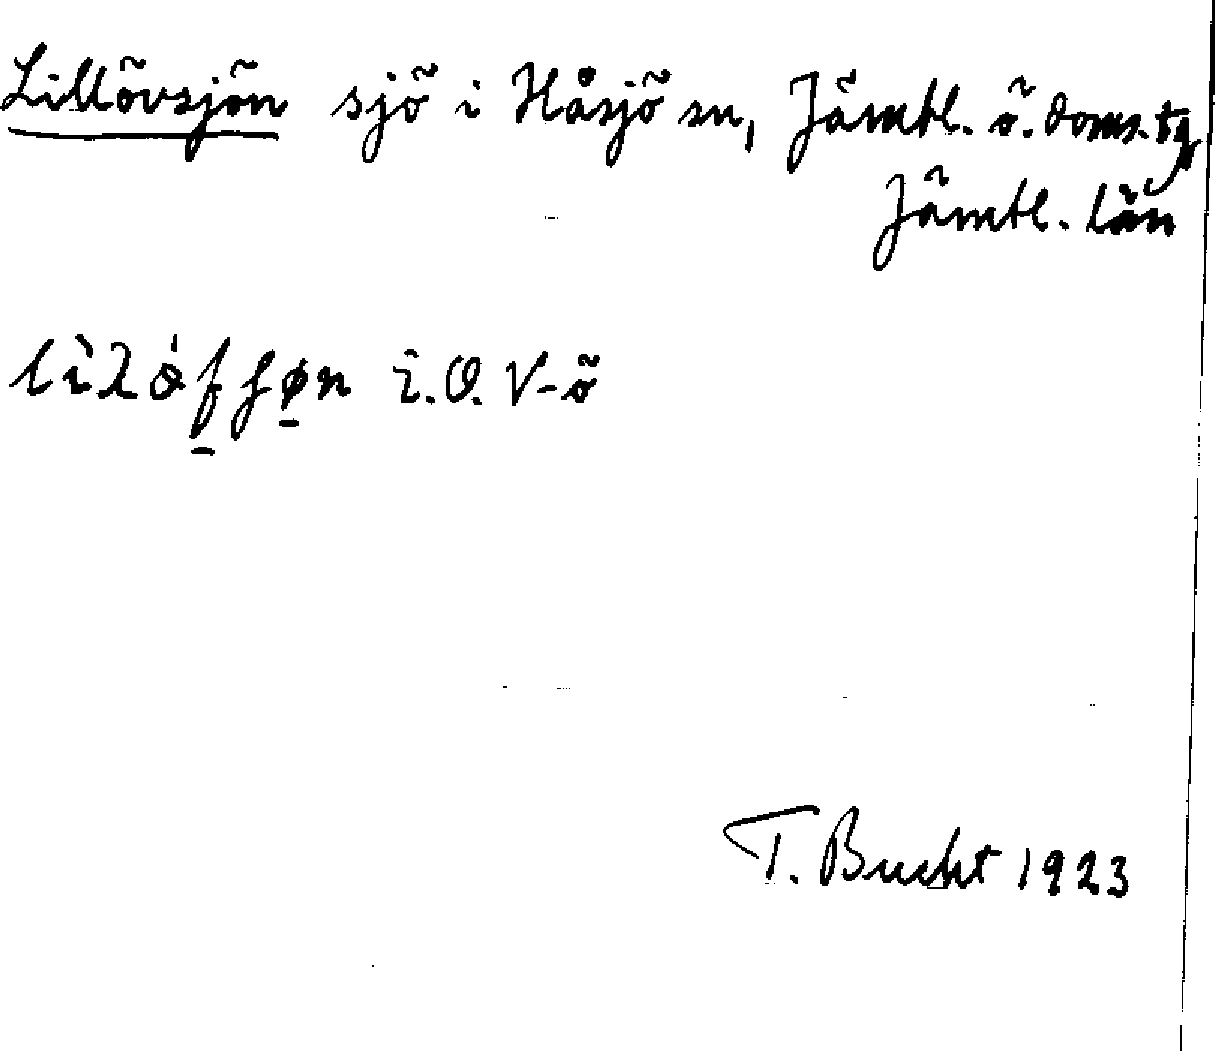 Lillövsjön sjö i Håsjö sn, Jämtl. ö. doms.tg
Jämtl. län
i. O. V-ö
T. Bucht 1923